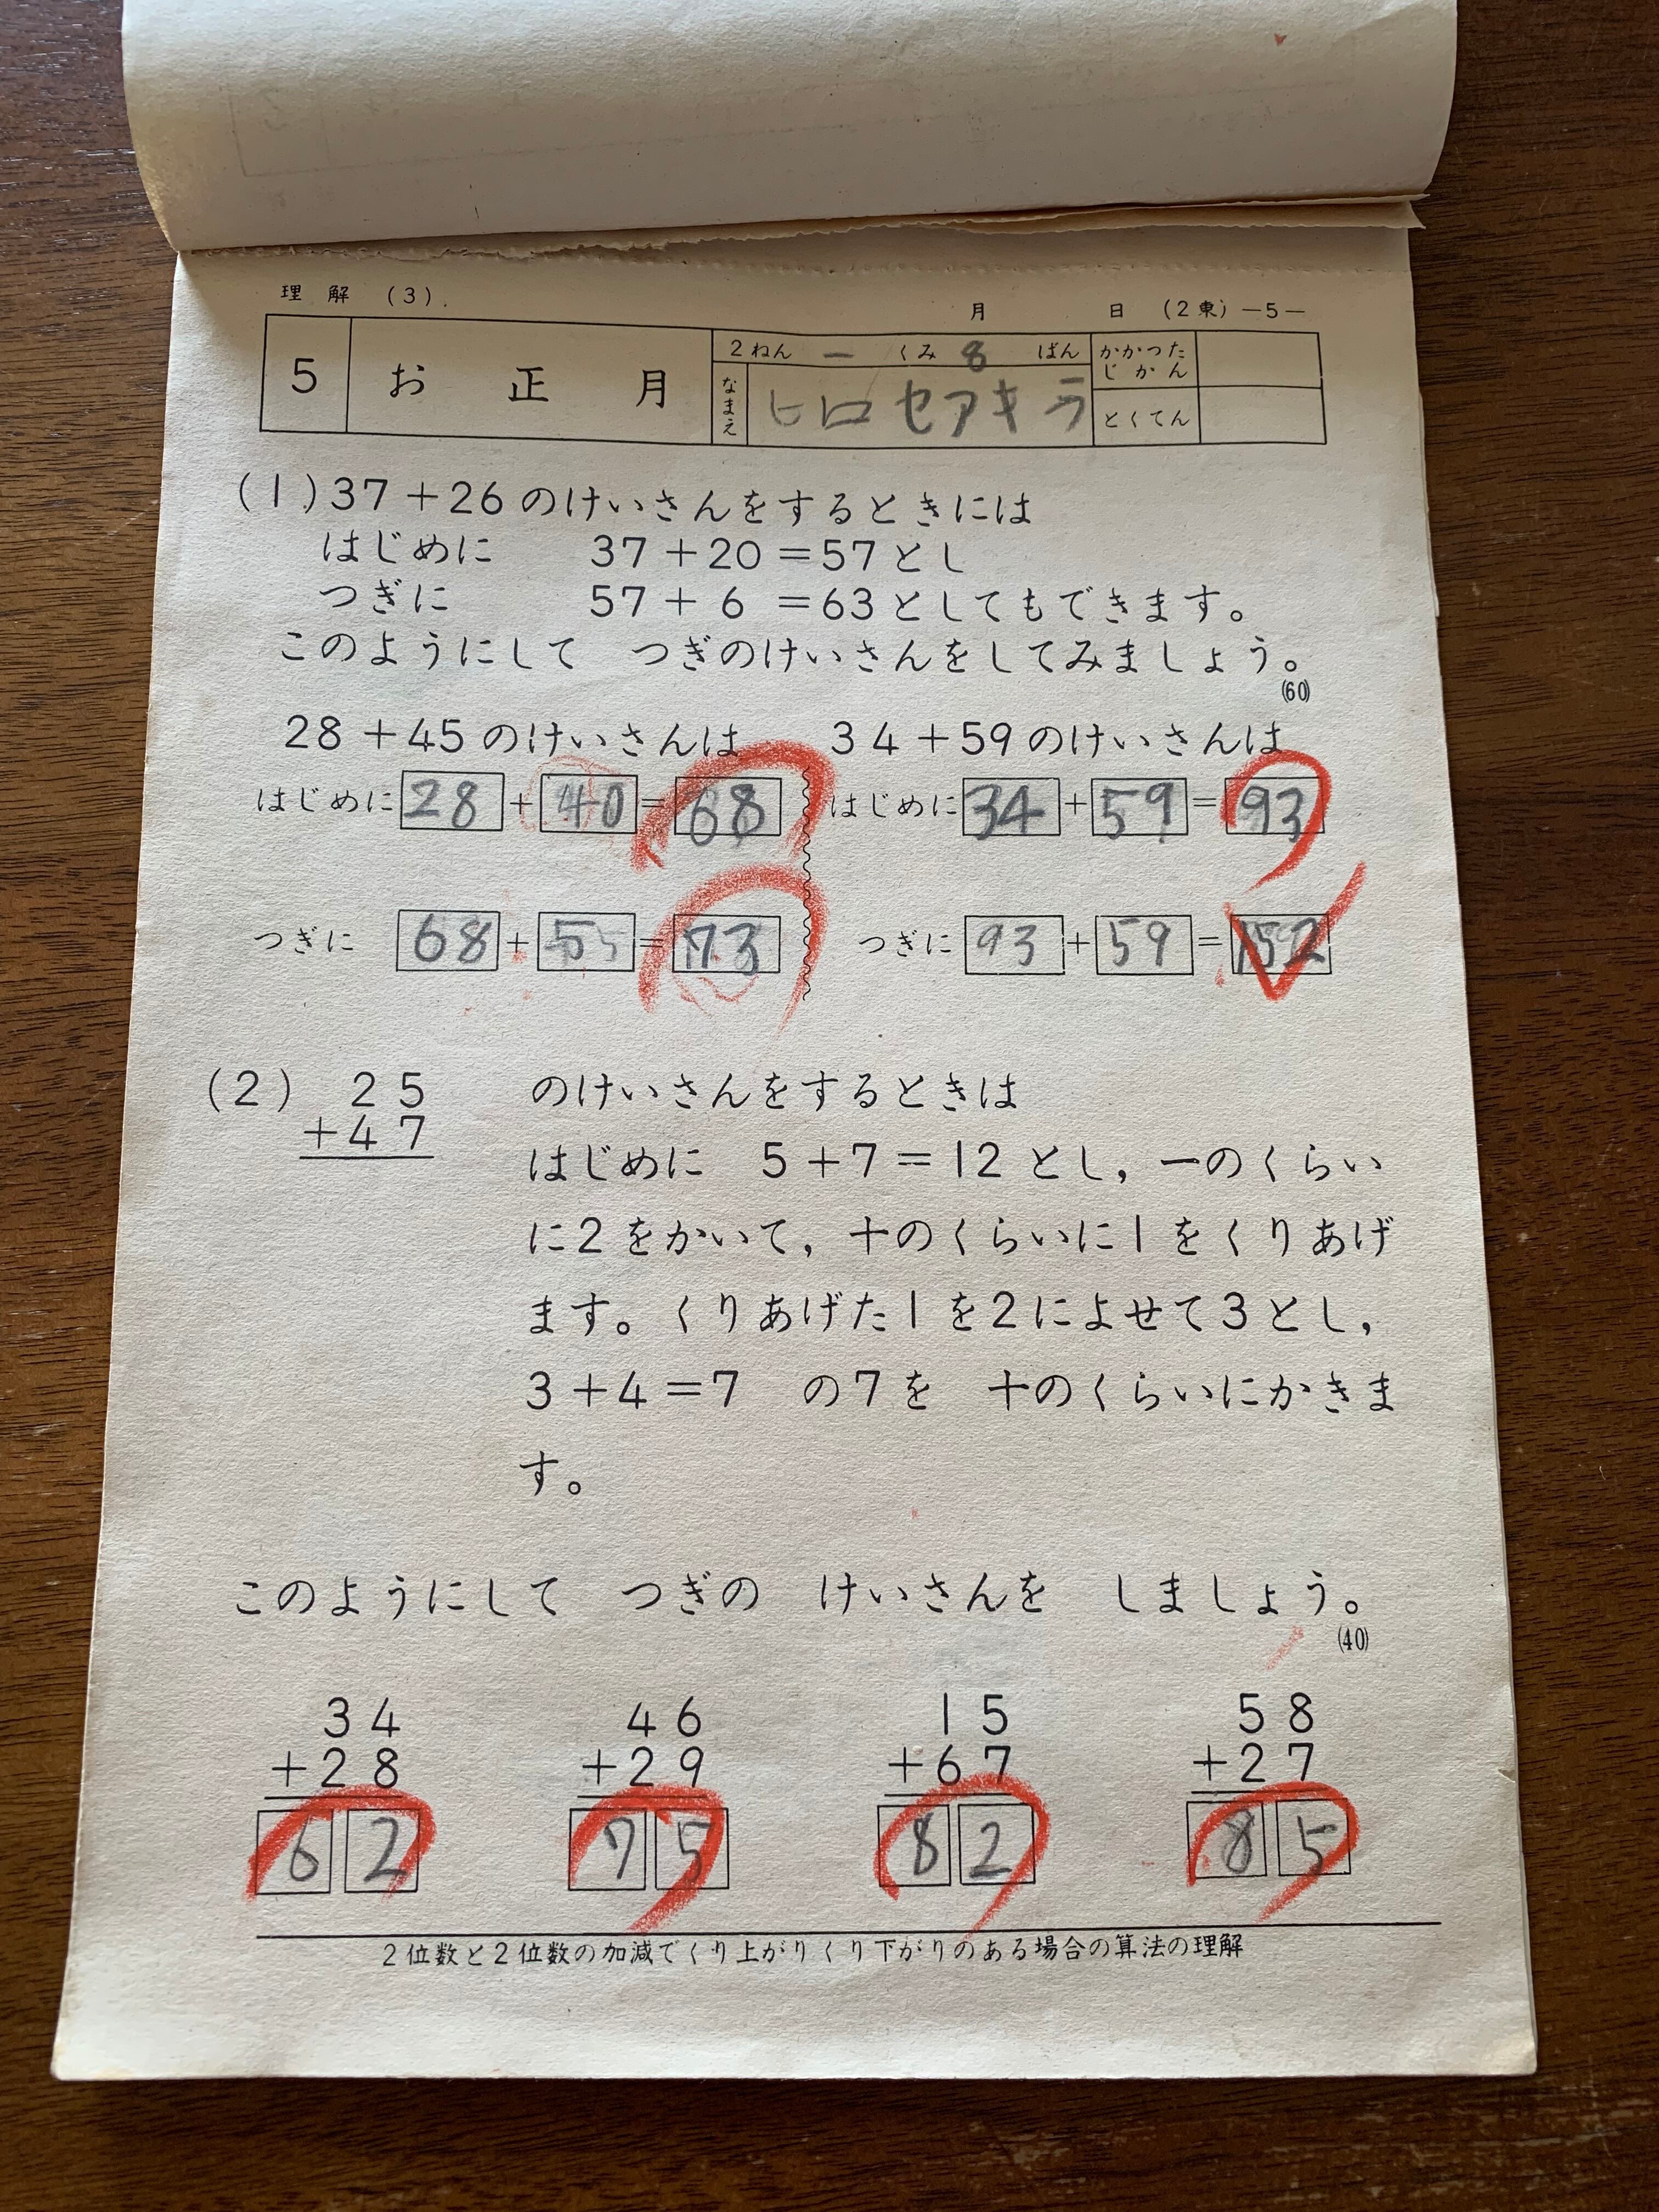 理解 (3)
月 日 (2東)－5－
5 お正月 2ねん 一 くみ 8 ばん かかつたじかん
なまえ ヒロセアキラ とくてん
(1) 37＋26のけいさんをするときには
はじめに 37＋20＝57とし
つぎに 57＋6＝63としてもできます。
このようにして つぎのけいさんをしてみましょう。
(60)
28＋45のけいさんは 34＋59のけいさんは
はじめに 28＋40＝68 はじめに 34＋59＝93
つぎに 68＋5＝73 つぎに 93＋59＝152
(2) 25 のけいさんをするときは
＋47
はじめに 5＋7＝12 とし，一のくらい
に2をかいて，十のくらいに1をくりあげ
ます。くりあげた1を2によせて3とし，
3＋4＝7 の7を 十のくらいにかきま
す。
このようにして つぎの けいさんを しましょう。
(40)
34 46 15 58
＋28 ＋29 ＋67 ＋27
62 75 82 85
2位数と2位数の加減でくり上がりくり下がりのある場合の算法の理解